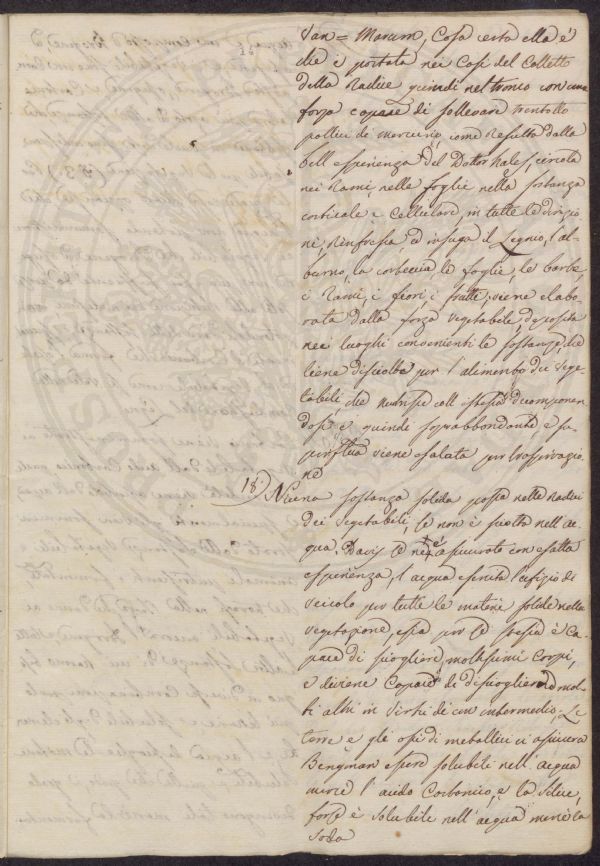 Van = Marum, Cosa certa ella è
che è portata nei Casi del Colletto
della Radice quindi nel tronco con una
forza capace di sollevare trentotto
pollici di mercurio, come Resulta dalla
bell esperienza del Dottor Hales, circola
nei Rami, nelle foglie nella sostanza
corticale e Cellulare, in tutte le direzio
ni, Rinfresca ed infuga il Legnio, l'al-
burno, la corteccia, le foglie, le barbe,
i Rami, i fiori, i frutti, viene elabo-
rata dalla forza vegetabile, deposita
nei luoghi convenienti le sostanze, che
tiene disciolte per l'alimento dei vege-
tabili, che nutrisce coll essersi decomponen
dosi e quindi soprabbondante, e su-
perflua viene esalata per traspirazio
ne
18.) Niuna sostanza solida passa nelle Radici
dei vegetabili, se non è sciolta nell'ac
qua. Davis ce ne è assicurato con esatta
esperienza, l'acqua esercita l'ufizio di
veicolo per tutte le materie solide nella
vegetazione, essa per se stessa è ca-
pace di sciogliere moltissimi corpi,
e diviene Capace di disciogliere mol-
ti altri in virtù di un intermedio. Le
terre e gli ossidi metallici ci assicura
Bergman essere solubili nell'acqua
mercè l'acido Carbonico, e la Silice,
forse è solubile nell'acqua mercè la
soda